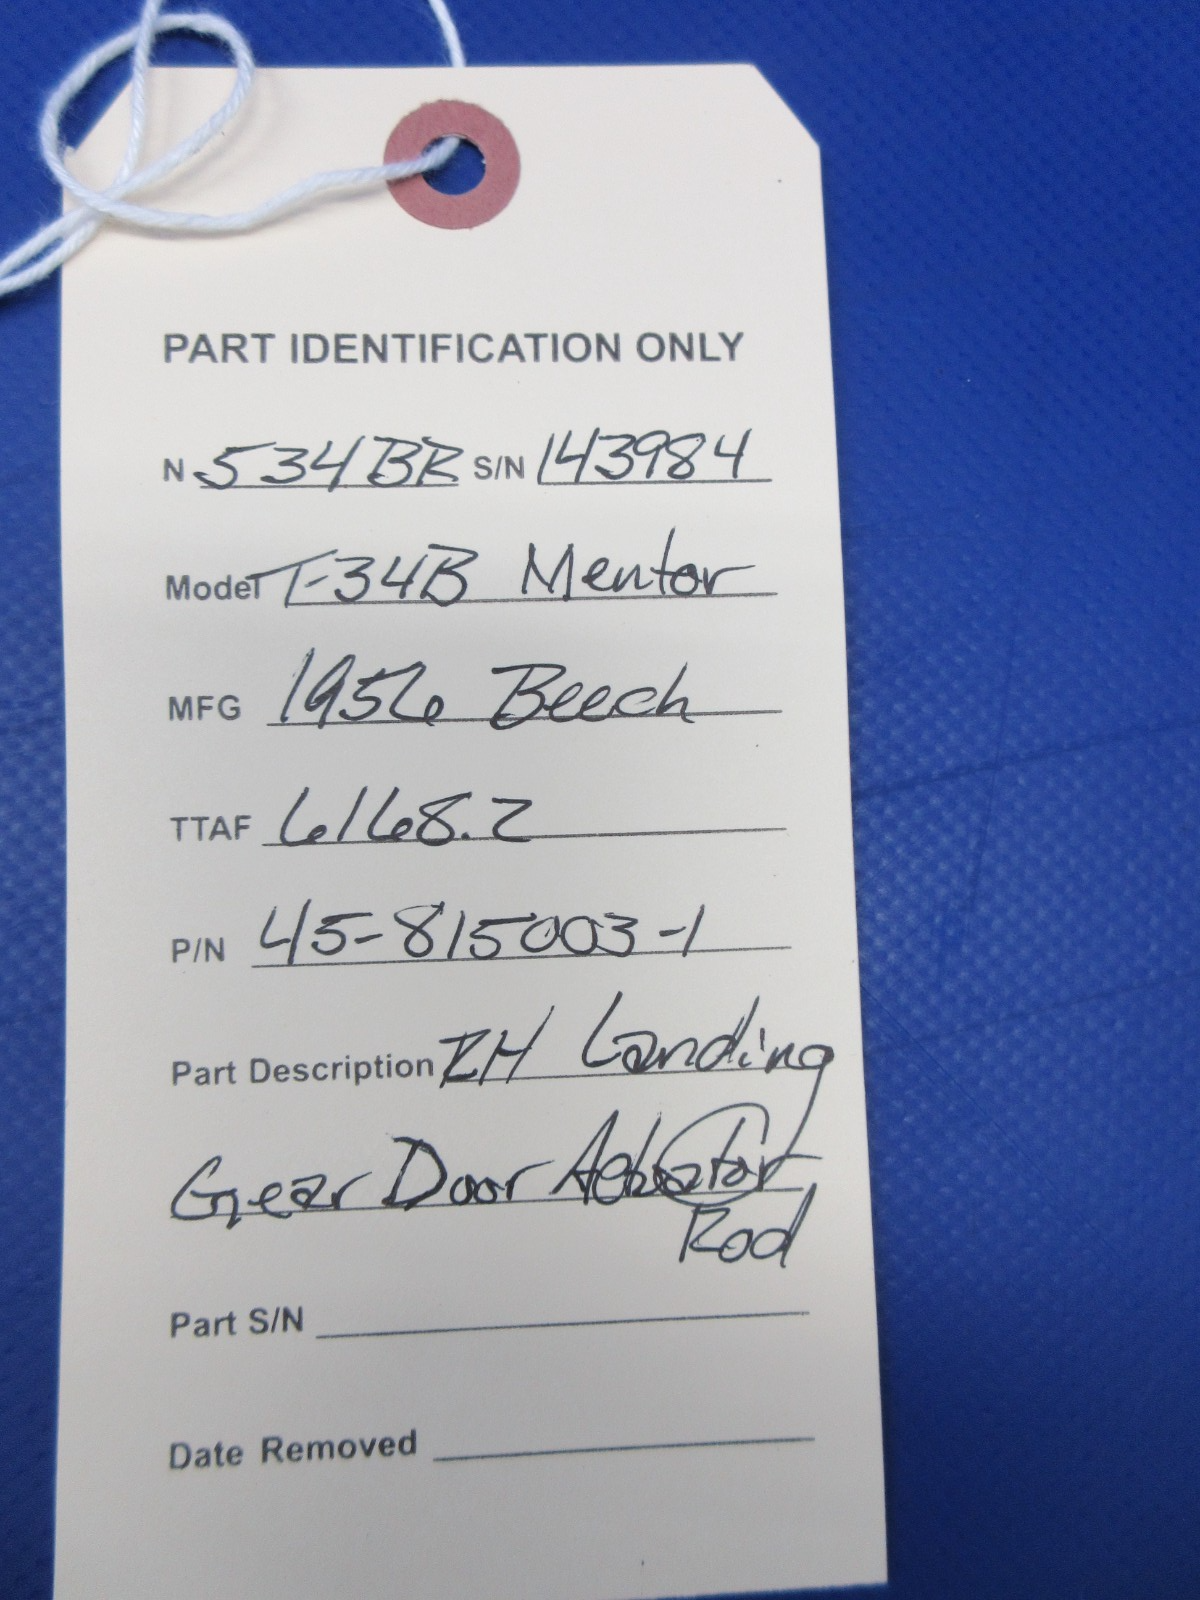 PART IDENTIFICATION ONLY
N 534BR S/N 143984
Model T-34B Mentor
MFG 1956 Beech
TTAF 6168.2
P/N 45-815003-1
Part Description RH Landing
Gear Door Actuator
Rod
Part S/N
Date Removed